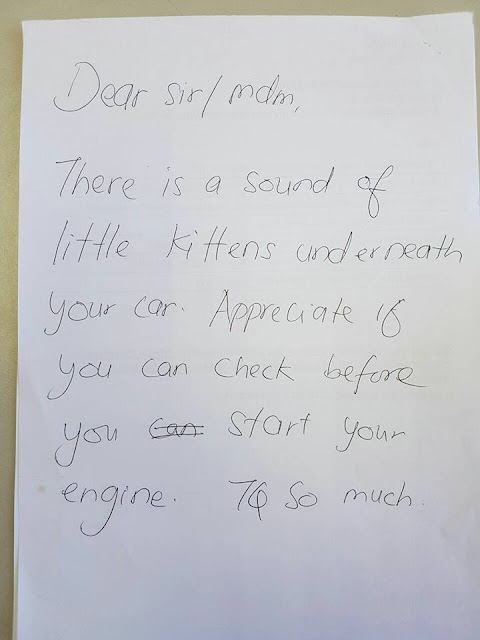 Dear sir/mdm,
There is a sound of
little kittens underneath
your car. Appreciate if
you can check before
you can start your
engine. TQ so much.